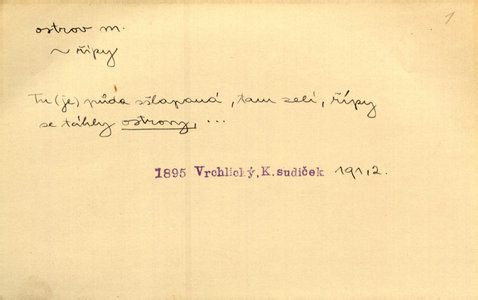 1
ostrov m.
~ řípy
Tu (je) půda sšlapaná, tam zelí, řípy
se táhly ostrovy, ...
1895 Vrchlický, K. sudiček 191,2.